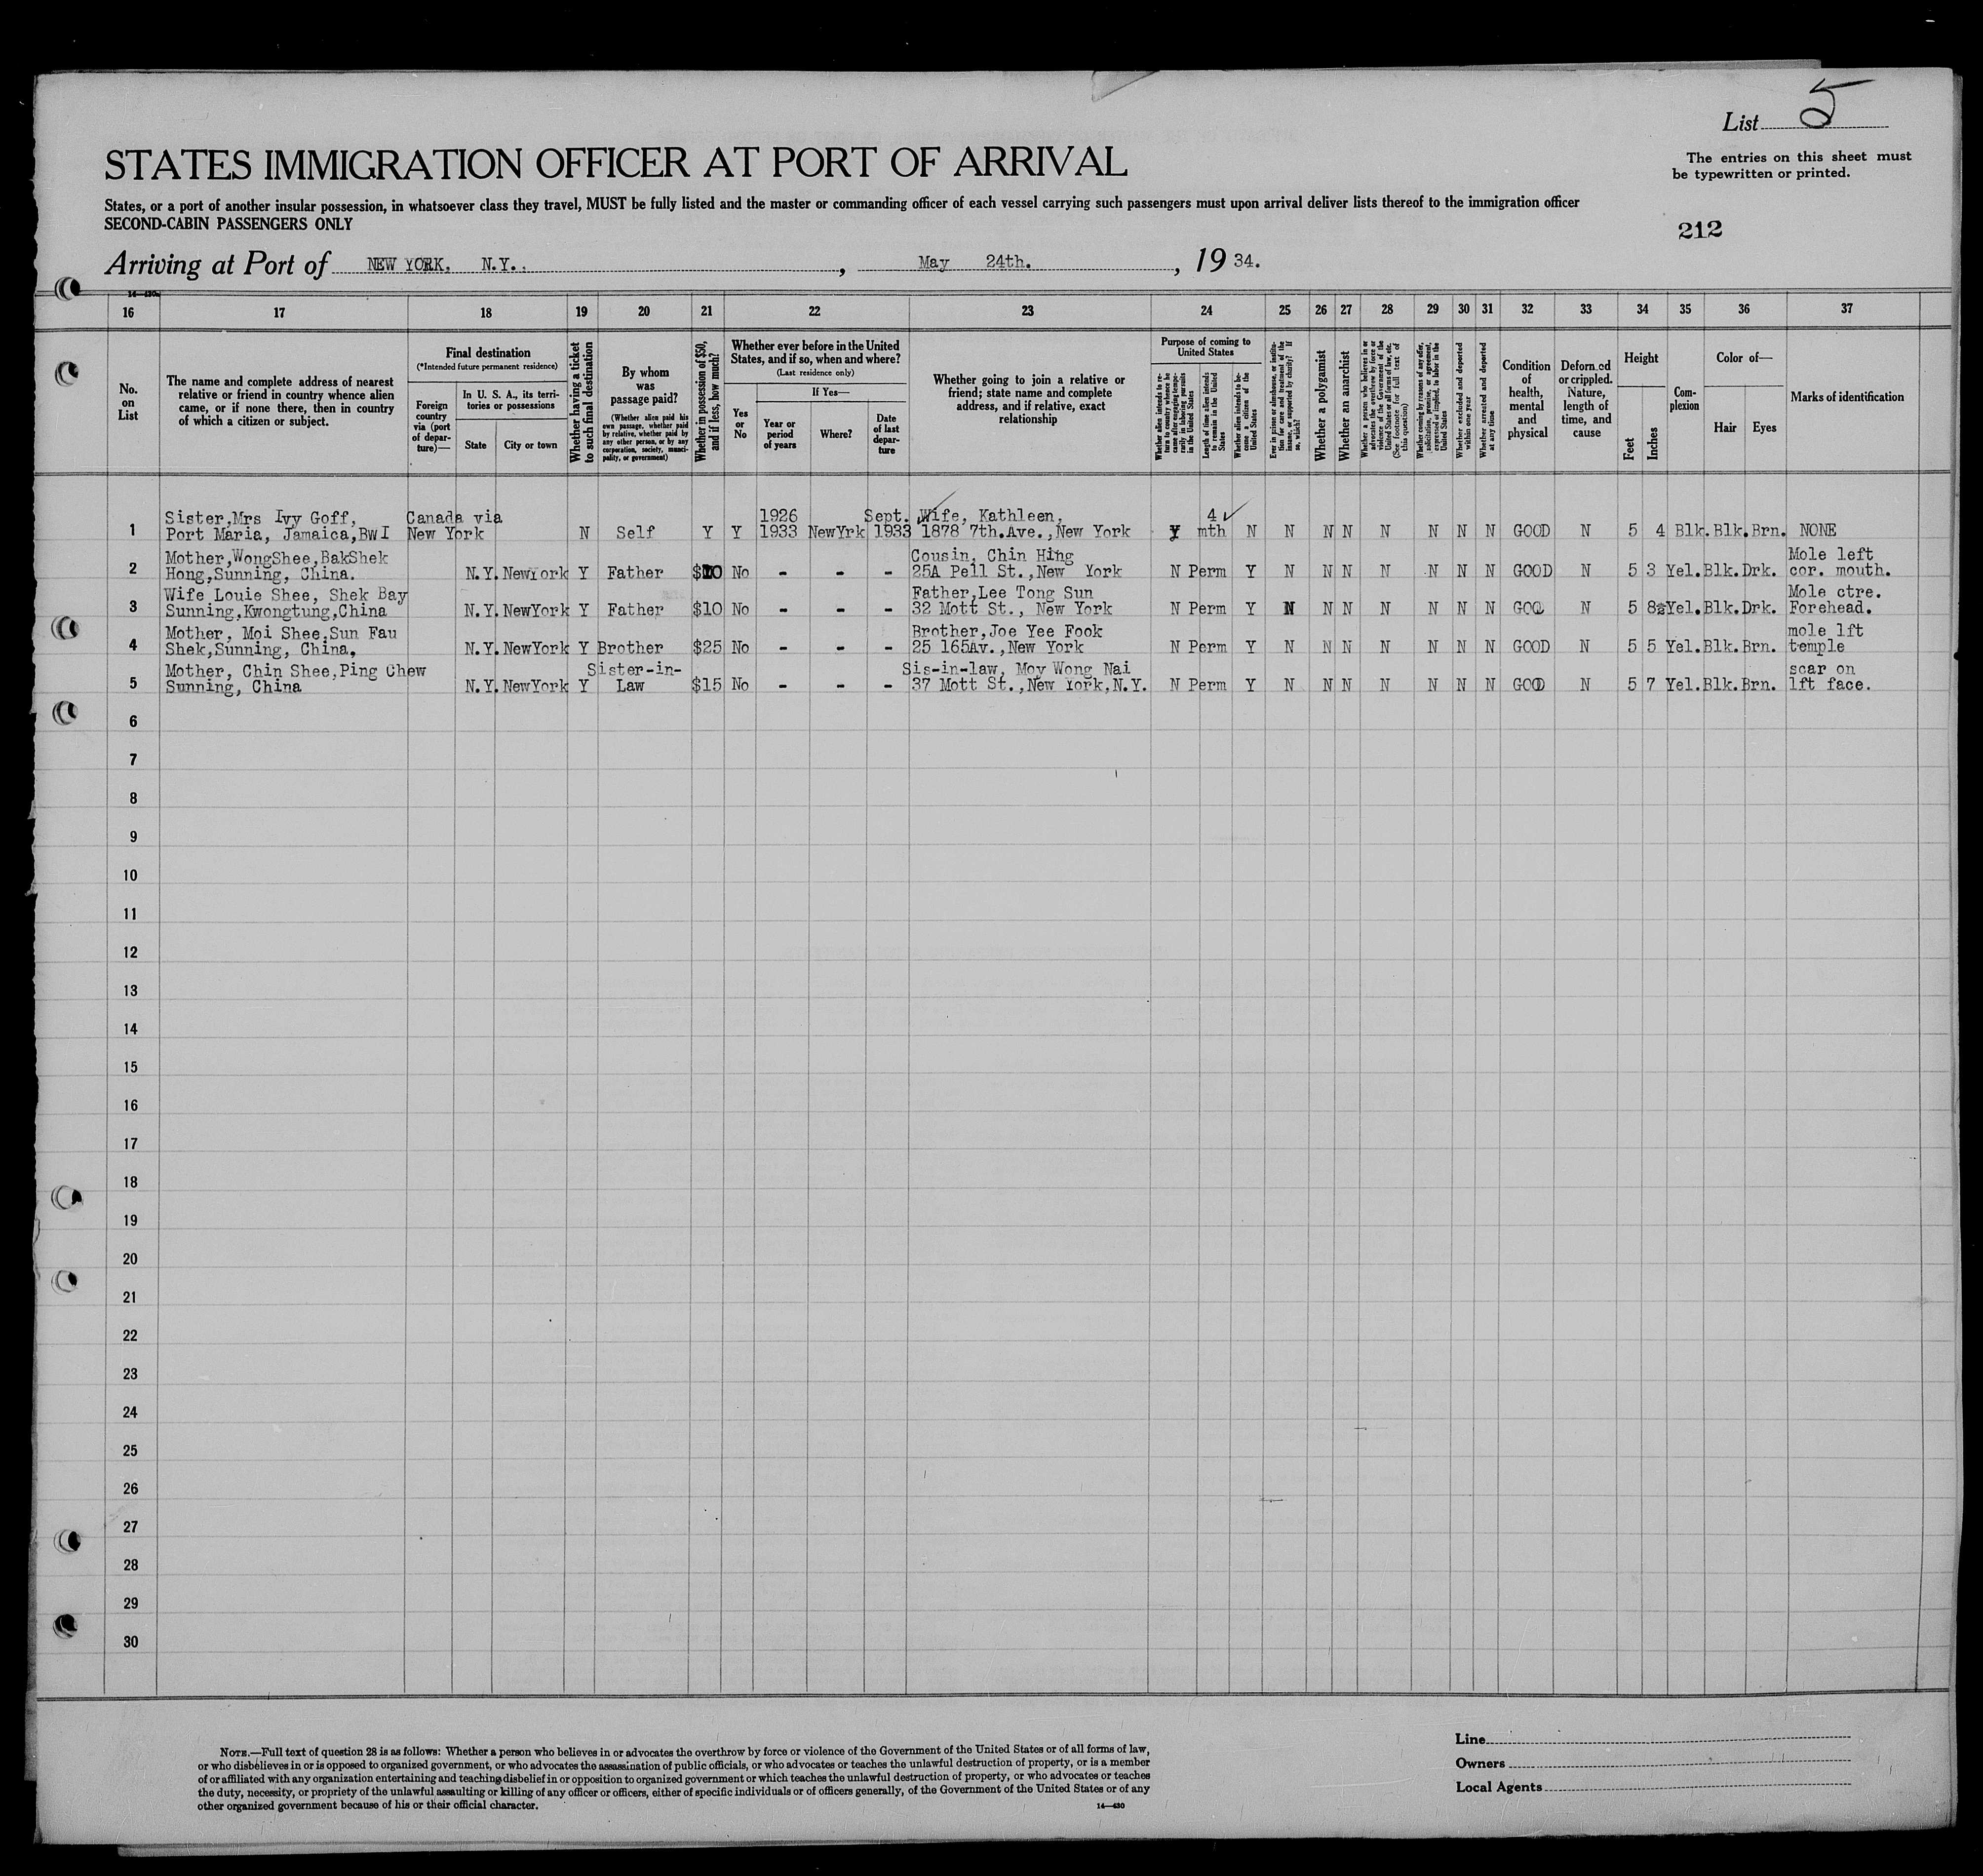 List 5
The entries on this sheet must
be typewritten or printed.
STATES IMMIGRATION OFFICER AT PORT OF ARRIVAL
States, or a port of another insular possession, in whatsoever class they travel, MUST be fully listed and the master or commanding officer of each vessel carrying such passengers must upon arrival deliver lists thereof to the immigration officer
SECOND-CABIN PASSENGERS ONLY
212
Arriving at Port of NEW YORK. N.Y. , May 24th. , 19 34.
16 17 18 19 20 21 22 23 24 25 26 27 28 29 30 31 32 33 34 35 36 37
No.
on
List
The name and complete address of nearest
relative or friend in country whence alien
came, or if none there, then in country
of which a citizen or subject.
Final destination
(*Intended future permanent residence)
Foreign
country
via (port
of depar-
ture)—
In U. S. A., its terri-
tories or possessions
State
City or town
Whether having a ticket
to such final destination
By whom
was
passage paid?
(Whether alien paid his
own passage, whether paid
by relative, whether paid by
any other person, or by any
corporation, society, munici-
pality, or government)
Whether in possession of $50,
and if less, how much?
Whether ever before in the United
States, and if so, when and where?
(Last residence only)
Yes
or
No
If Yes—
Year or
period
of years
Where?
Date
of last
depar-
ture
Whether going to join a relative or
friend; state name and complete
address, and if relative, exact
relationship
Purpose of coming to
United States
Whether alien intends to re-
turn to country whence he
came after engaging tempo-
rarily in laboring pursuits
in the United States
Length of time alien intends
to remain in the United
States
Whether alien intends to be-
come a citizen of the
United States
Ever in prison or almshouse, or institu-
tion for care and treatment of the
insane, or supported by charity? If
so, which?
Whether a polygamist
Whether an anarchist
Whether a person who believes in or
advocates the overthrow by force or
violence of the Government of the
United States or all forms of law, etc.
(See footnote for full text of
this question)
Whether coming by reasons of any offer,
solicitation, promise, or agreement,
expressed or implied, to labor in the
United States
Whether excluded and deported
within one year
Whether arrested and deported
at any time
Condition
of
health,
mental
and
physical
Deformed
or crippled.
Nature,
length of
time, and
cause
Height
Feet
Inches
Com-
plexion
Color of—
Hair
Eyes
Marks of identification
Sister,Mrs Ivy Goff, Canada via 1926 Sept. Wife, Kathleen, 4
1 Port Maria, Jamaica,BWI New York N Self Y Y 1933 NewYrk 1933 1878 7th.Ave.,New York Y mth N N N N N N N N GOOD N 5 4 Blk.Blk.Brn. NONE
Mother,WongShee,BakShek Cousin, Chin Hing Mole left
2 Hong,Sunning, China. N.Y.NewYork Y Father No - - - 25A Pell St.,New York N Perm Y N N N N N N N GOOD N 5 3 Yel.Blk.Drk. cor. mouth.
Wife Louie Shee, Shek Bay Father,Lee Tong Sun Mole ctre.
3 Sunning,Kwongtung,China N.Y.NewYork Y Father $10 No - - - 32 Mott St., New York N Perm Y N N N N N N N N 5 Yel.Blk.Drk. Forehead.
Mother, Moi Shee,Sun Fau Brother,Joe Yee Fook mole lft
4 Shek,Sunning, China, N.Y.NewYork Y Brother $25 No - - - 25 165Av.,New York N Perm Y N N N N N N N GOOD N 5 5 Yel.Blk.Brn. temple
Mother, Chin Shee,Ping Chew Sister-in- Sis-in-law, Moy Wong Nai scar on
5 Sunning, China N.Y.NewYork Y Law $15 No - - - 37 Mott St.,New York,N.Y. N Perm Y N N N N N N N GOOD N 5 7 Yel.Blk.Brn. lft face.
6
7
8
9
10
11
12
13
14
15
16
17
18
19
20
21
22
23
24
25
26
27
28
29
30
NOTE.—Full text of question 28 is as follows: Whether a person who believes in or advocates the overthrow by force or violence of the Government of the United States or of all forms of law,
or who disbelieves in or is opposed to organized government, or who advocates the assassination of public officials, or who advocates or teaches the unlawful destruction of property, or is a member
of or affiliated with any organization entertaining and teaching disbelief in or opposition to organized government or which teaches the unlawful destruction of property, or who advocates or teaches
the duty, necessity, or propriety of the unlawful assaulting or killing of any officer or officers, either of specific individuals or of officers generally, of the Government of the United States or of any
other organized government because of his or their official character. 14—430
Line
Owners
Local Agents